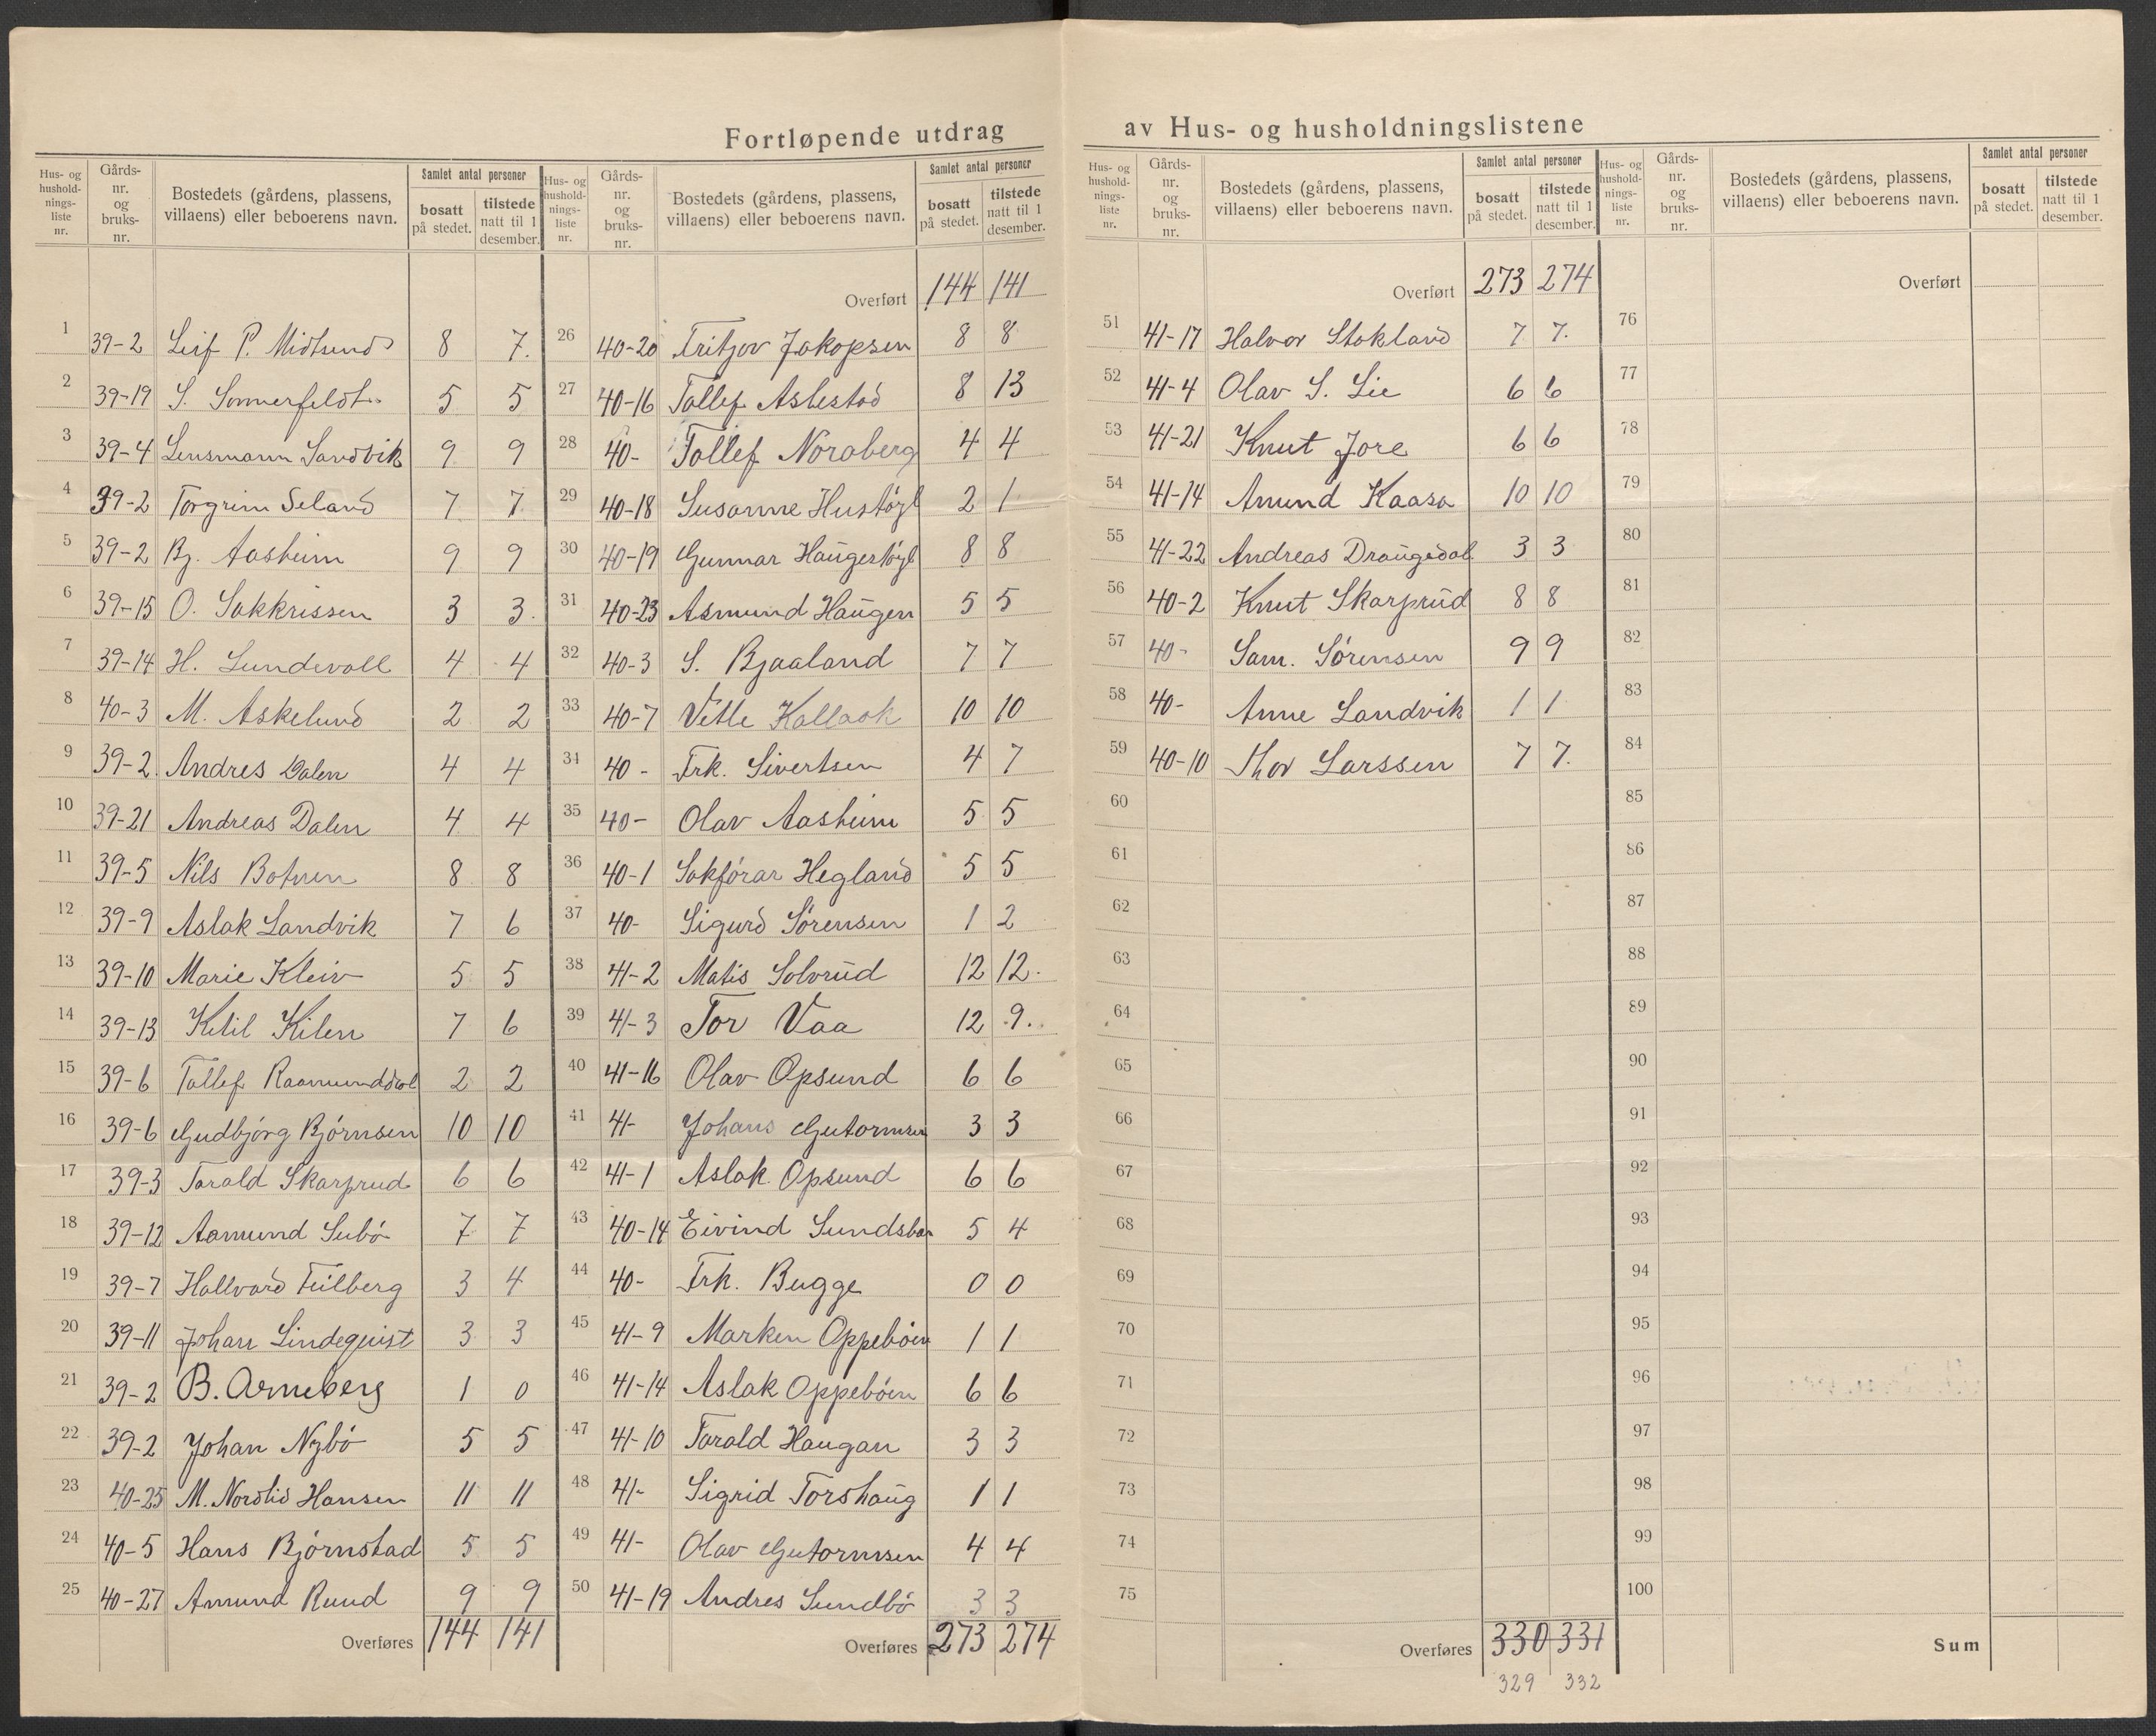 Fortløpende utdrag av Hus- og husholdningslistene
Hus- og hushold-nings-liste nr. Gårds-nr. og bruks-nr. Bostedets (gårdens, plassens, villaens) eller beboerens navn. Samlet antal personer bosatt på stedet. tilstede natt til 1 desember.
1 39-2 Leif P. Midtsund 8 7.
2 39-19 S. Sommerfeldt 5 5
3 39-4 Lensmann Sandvik 9 9
4 39-2 Torgrim Seland 7 7
5 39-2 Bj. Aasheim 9 9
6 39-15 O. Sakkrissen 3 3.
7 39-14 H. Lundevall 4 4
8 40-3 M. Askelund 2 2
9 39-2 Andres Dalen 4 4
10 39-21 Andreas Dalen 4 4
11 39-5 Nils Botnen 8 8
12 39-9 Aslak Landvik 7 6
13 39-10 Marie Kleiv 5 5
14 39-13 Ketil Kilen 7 6
15 39-6 Tallef Raamunddal 2 2
16 39-6 Gudbjørg Bjørnsen 10 10
17 39-3 Torald Skarprud 6 6
18 39-12 Aamund Subø 7 7
19 39-7 Hallvard Feilberg 3 4
20 39-11 Johan Lindequist 3 3
21 39-2 B. Arneberg 1 0
22 39-2 Johan Nybø 5 5
23 40-25 M. Nordlid Hansen 11 11
24 40-5 Hans Bjørnstad 5 5
25 40-27 Amund Ruud 9 9
Overføres 144 141
Hus- og hushold-nings-liste nr. Gårds-nr. og bruks-nr. Bostedets (gårdens, plassens, villaens) eller beboerens navn. Samlet antal personer bosatt på stedet. tilstede natt til 1 desember.
Overført 144 141
26 40-20 Fritjov Jakopsen 8 8
27 40-16 Tallef Aslestad 8 13
28 40- Tallef Noraberg 4 4
29 40-18 Susanne Hustøyl 2 1
30 40-19 Gunnar Haugestøyl 8 8
31 40-23 Asmund Haugen 5 5
32 40-3 S. Bjaaland 7 7
33 40-7 Vetle Kallaak 10 10
34 40- Frk. Sivertsen 4 7
35 40- Olav Aasheim 5 5
36 40-1 Sakførar Hegland 5 5
37 40- Sigurd Sørensen 1 2
38 41-2 Matis Solvrud 12 12.
39 41-3 Tor Vaa 12 9.
40 41-16 Olav Opsund 6 6
41 41- Johans Gutormsen 3 3
42 41-1 Aslak Opsund 6 6
43 40-14 Eivind Sundsbar 5 4
44 40- Frk. Bugge 0 0
45 41-9 Marken Oppebøen 1 1
46 41-14 Aslak Oppebøen 6 6
47 41-10 Torald Haugan 3 3
48 41- Sigrid Torshaug 1 1
49 41- Olav Gutormsen 4 4
50 41-19 Andres Sundbø 3 3
Overføres 273 274
Hus- og hushold-nings-liste nr. Gårds-nr. og bruks-nr. Bostedets (gårdens, plassens, villaens) eller beboerens navn. Samlet antal personer bosatt på stedet. tilstede natt til 1 desember.
Overført 273 274
51 41-17 Halvor Stokland 7 7.
52 41-4 Olav S. Lie 6 6
53 41-21 Knut Jore 6 6
54 41-14 Amund Kaasa 10 10
55 41-22 Andreas Draugedal 3 3
56 40-2 Knut Skarprud 8 8
57 40- Sam. Sørensen 9 9
58 40- Anne Landvik 1 1
59 40-10 Thor Larssen 7 7.
60
61
62
63
64
65
66
67
68
69
70
71
72
73
74
75
Overføres 330 331
329 332
Hus- og hushold-nings-liste nr. Gårds-nr. og bruks-nr. Bostedets (gårdens, plassens, villaens) eller beboerens navn. Samlet antal personer bosatt på stedet. tilstede natt til 1 desember.
Overført
76
77
78
79
80
81
82
83
84
85
86
87
88
89
90
91
92
93
94
95
96
97
98
99
100
Sum